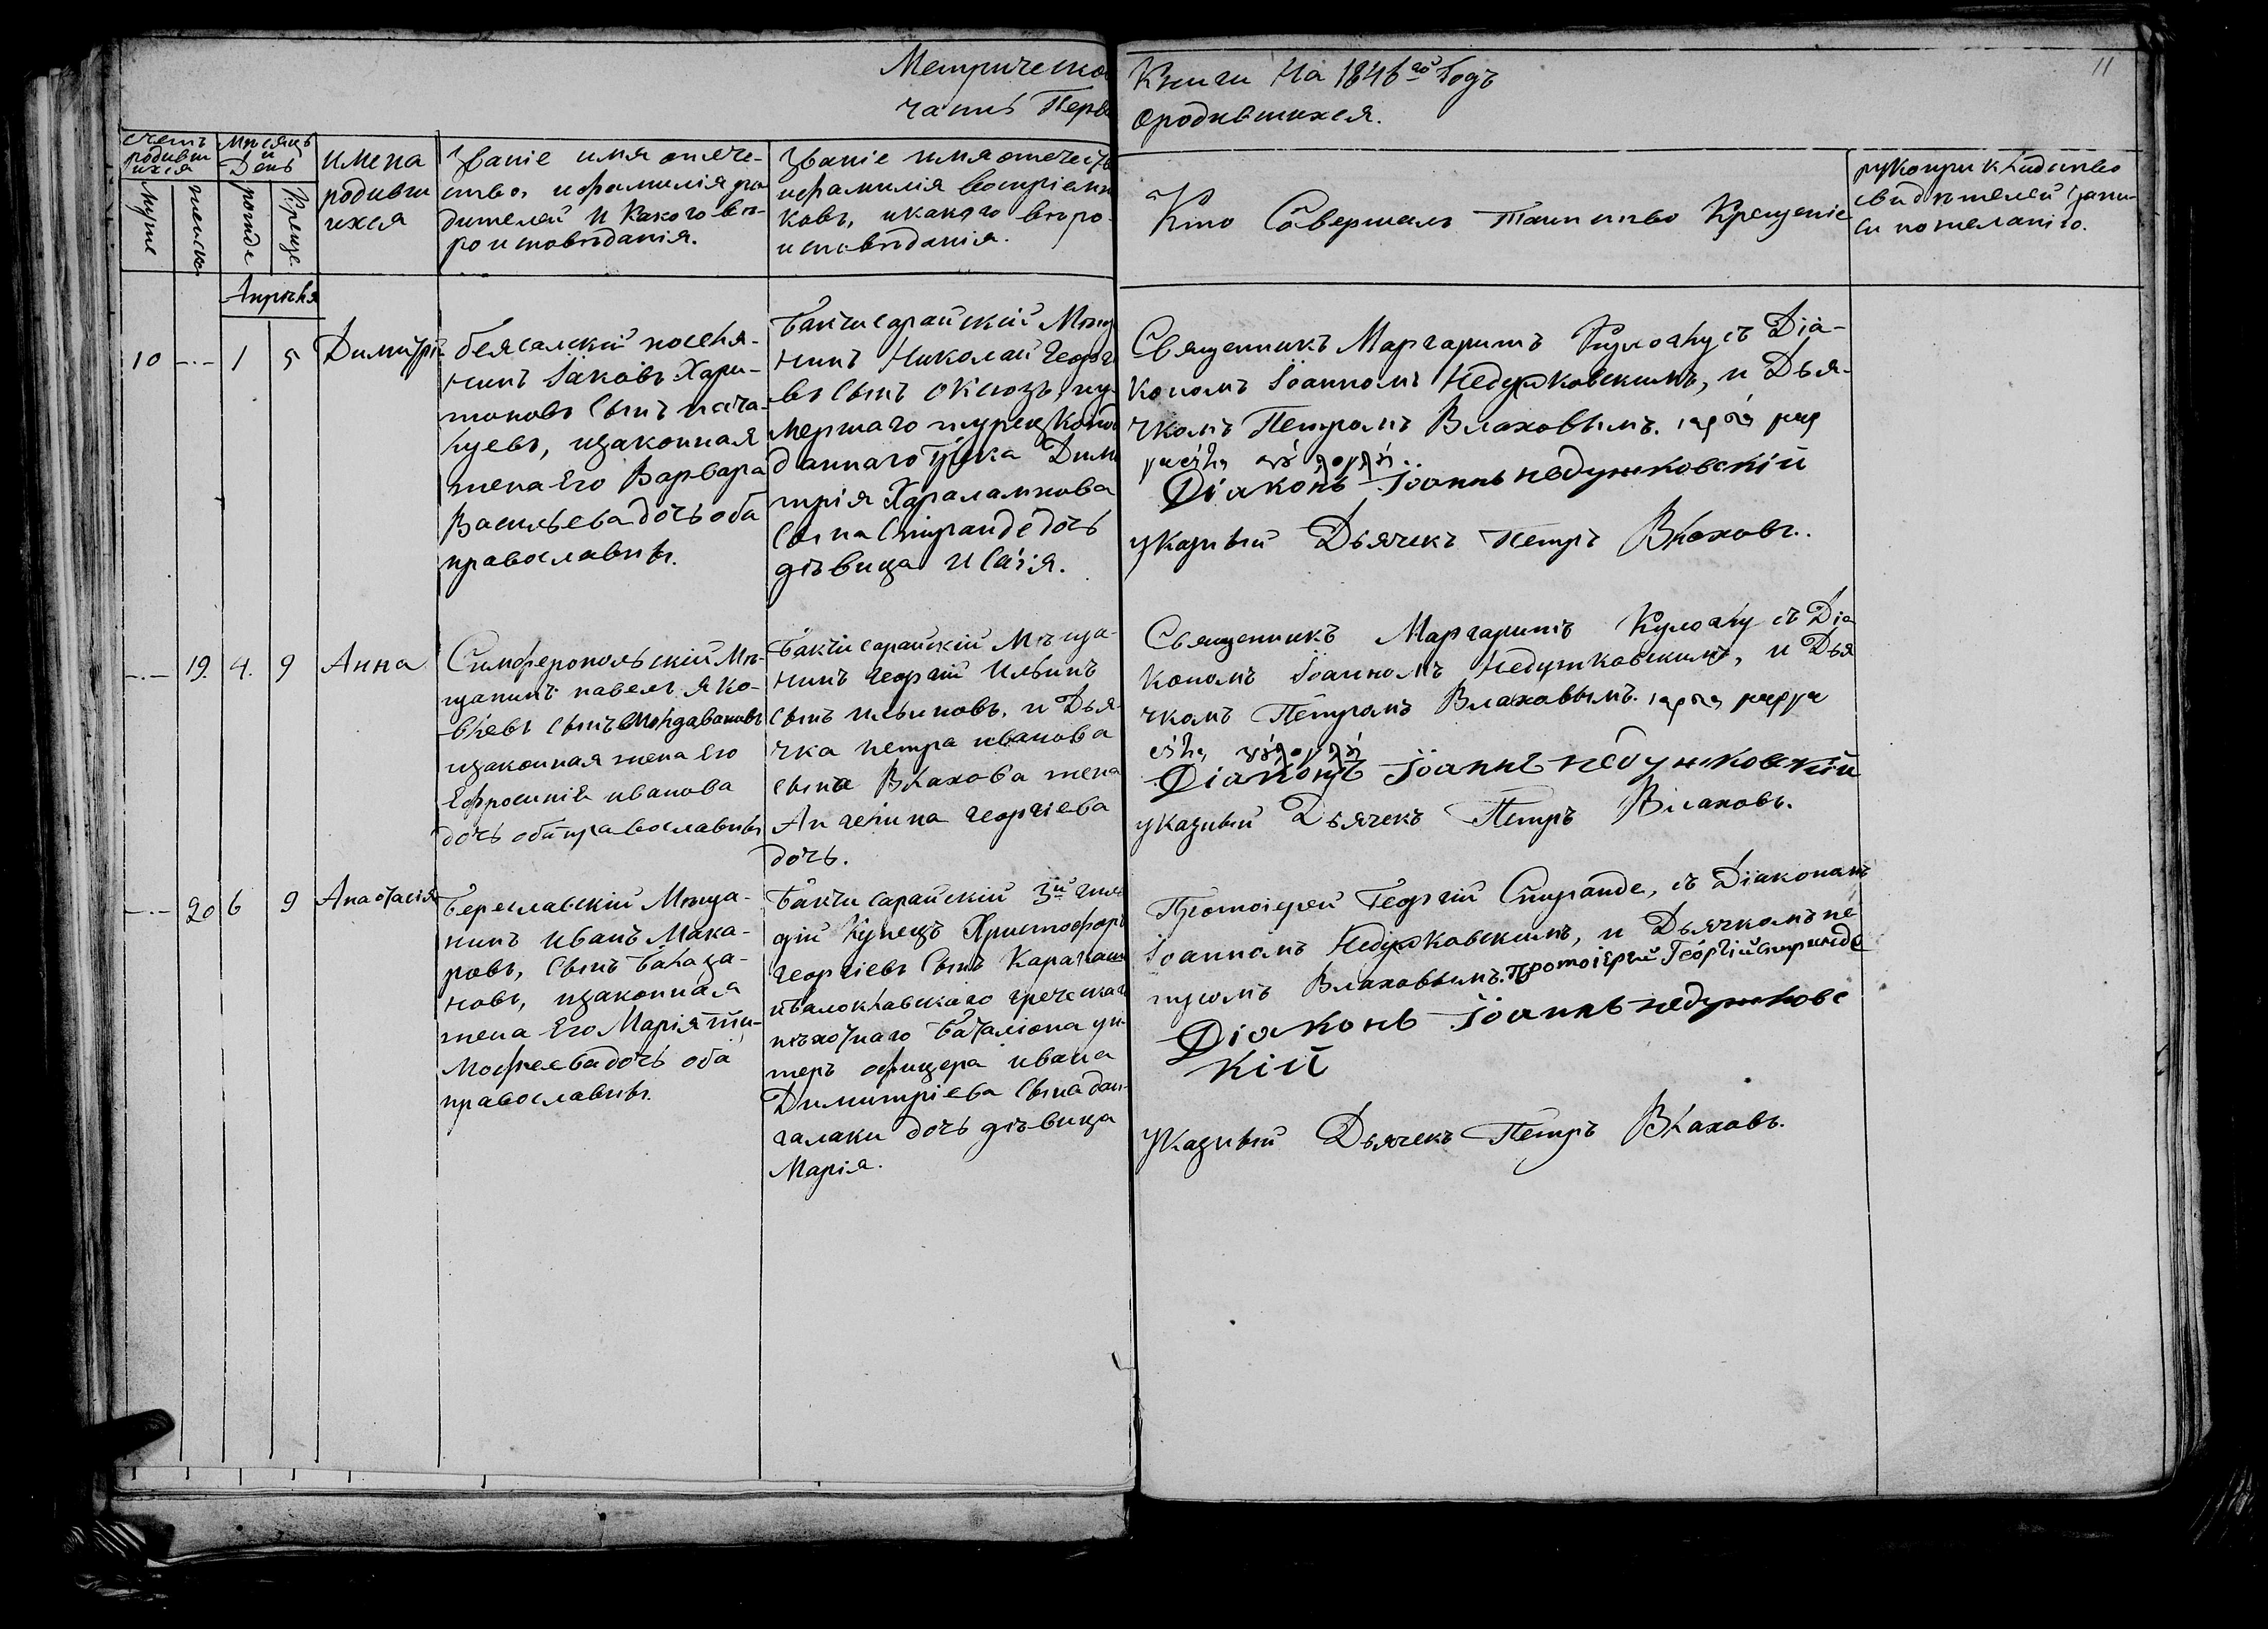 Метрической
Книги На 1846го Годъ
11
часть Перва
ородившихся.
счетъ
родивш
ихся
Мѣсяцъ
и
День
муже
женско
рожде
Креще.
имена
родивши
ихся
Званіе имя отече-
ство, ифамилія ро
дителей И Какого вѣ-
ро исповѣданія.
Званіе имя отечест
ифамилія Воспріемн
ковъ, икакого вѣро-
исповѣданія.
Кто Совершалъ Таинство Крещеніе
рукоприкладство
свидѣтелей запи-
си пожеланію.
Апрѣля
10 -·- 1 5 Димитрі
беясалскій поселя-
нинъ Іаковъ Хари-
тоновъ сынъ
изаконная
жена Его Варвара
Васильева дочь оба
православны.
Бакчисарайскій Мѣщ
нинъ Николай Георгі
въ Сынъ иу
мершаго турецкопод
даннаго Грека Дими
трія Харалампова
Сына Спиранде дочь
дѣвица Исаія.
Священникъ Маргаритъ Кулоглу съ Діа-
кономъ Іоанномъ Недужковскимъ, и Дья-
чкомъ Петромъ Влаховымъ.
Діаконъ Іоаннъ недужковскій
указный Дьячекъ Петръ Влаховъ.
-·- 19. 4. 9 Анна
Симферопольскій Мѣ-
щанинъ павелъ Яко-
влевъ Сынъ Молдавановъ
изаконная жена Его
Ефросинія иванова
дочь обаправославны
Бакчисарайскій Мѣща-
нинъ Георгій Ильинъ
сынъ ильиновъ, и Дья-
чка петра иванова
сына Влахова жена
Ангелина георгіева
дочь.
Священникъ Маргаритъ Кулоглу съ Діа
кономъ Іоанномъ Недужковскимъ, и Дья
чкомъ Петромъ Влаховымъ.
Діаконъ Іоаннъ недужковскій
указный Дьячекъ Петръ Влаховъ.
-·- 20 6 9 Анастасія
Береславскій Мѣща-
нинъ иванъ Мака-
ровъ, Сынъ Балаза-
новъ, изаконная
жена Его Марія Ти-
мофеева дочь оба
православны.
Бакчисарайскій 3й гил
дій Купецъ Христофоръ
георгіевъ Сынъ
ибалоклавского греческаго
пѣхотнаго Баталіона ун-
теръ офицера ивана
Димитріева Сына дан-
галаки дочь дѣвица
Марія.
Протоіерей Георгій Спиранде, съ Діакономъ
Іоанномъ Недужковскимъ, и Дьячкомъ пе
тромъ Влаховымъ. Протоіерей Георгій спиранде
Діаконъ Іоаннъ недужковс
кій
Указный Дьячекъ Петръ Влаховъ.